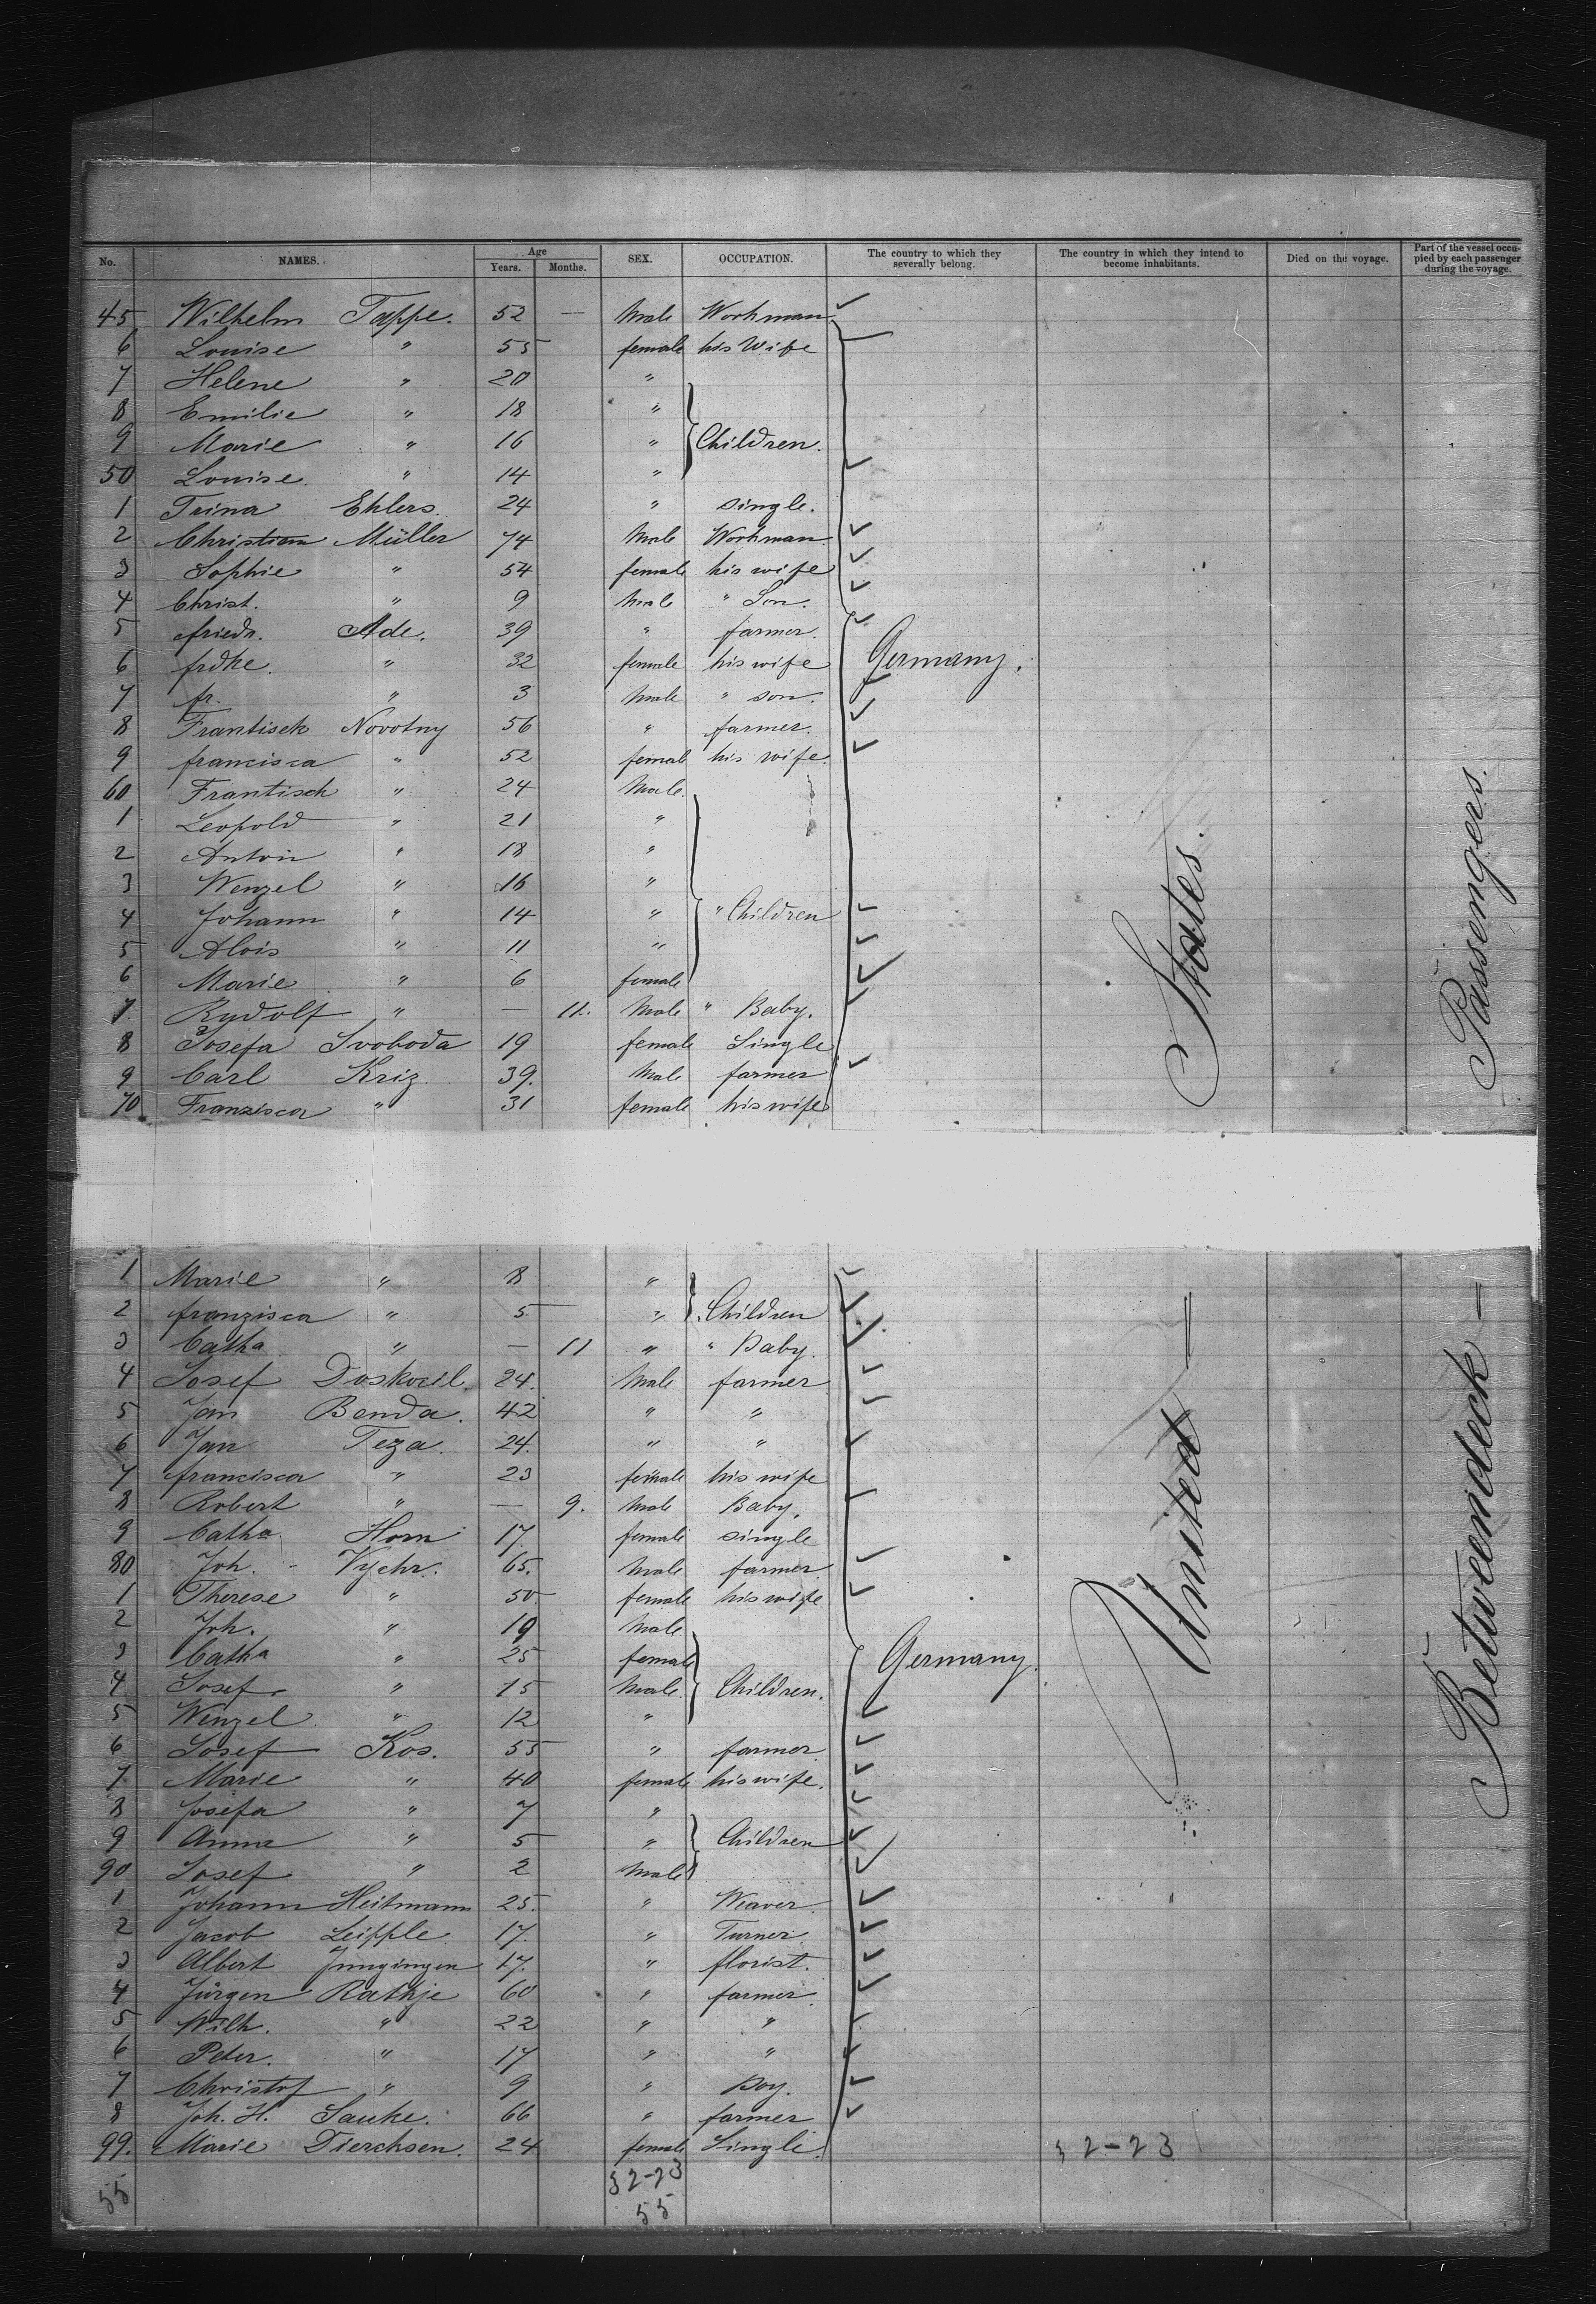 No. NAMES. Age Years. Months. SEX. OCCUPATION. The country to which they severally belong. The country in which they intend to become inhabitants. Died on the voyage. Part of the vessel occupied by each passenger during the voyage.
45 Wilhelm Tappe. 52 — Male Workman
6 Louise " 55 female his Wife
7 Helene " 20 "
8 Emilie " 18 "
9 Marie " 16 " Children.
50 Louise. " 14 "
1 Trina Ehlers. 24 " single.
2 Christian Müller 74 Male Workman
3 Sophie " 54 female his wife
4 Christ. " 9 Male " Son.
5 friedr. Ade. 39 " farmer.
6 frdke. " 32 female his wife Germany.
7 fr. " 3 Male " son.
8 Frantisek Novotny 56 " farmer.
9 francisca " 52 female his wife.
60 Frantisek " 24 Male.
1 Leopold " 21 "
2 Anton " 18 "
3 Wenzel " 16 "
4 Johann " 14 " " Children
5 Alois " 11 "
6 Marie " 6 female
7 Rudolf " — 11. Male " Baby.
8 Josefa Svoboda 19 female Single
9 Carl Kriz 39. Male farmer
70 Franzisca " 31 female his wife
1 Marie " 8 "
2 franzisca " 5 " Children
3 Catha " — 11 " " Baby.
4 Josef Doskocil. 24. Male farmer
5 Jan Benda. 42 " "
6 Jan Teza. 24. " "
7 francisca " 23 female his wife
8 Robert " — 9. Male Baby.
9 Catha Horn 17. female single
80 Joh. Vychr. 65. Male farmer
1 Therese " 50. female his wife
2 Joh. " 19 Male
3 Catha " 25 female Germany.
4 Josef " 15 Male. Children.
5 Wenzel " 12 "
6 Josef Kos. 55 " farmer
7 Marie " 40 female his wife.
8 Josefa " 7 "
9 Anna " 5 " Children
90 Josef " 2 Male
1 Johann Heitmann 25. " Weaver
2 Jacob Leipple. 17. " Turner
3 Albert Jungingen 17. " florist.
4 Jürgen Rathje 60 " farmer.
5 Wilh. " 22 " "
6 Peter. " 17 " "
7 Christof " 9 " Boy.
8 Joh. H. Sauke. 66 " farmer
99. Marie Dierchsen. 24 female Single. 32-23
32-23
55 55
United States.
Betweendeck — Passengers.